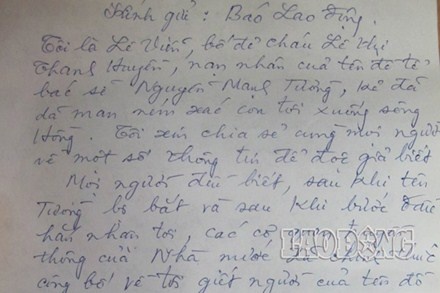 Kính gửi: Báo Lao Động.
Tôi là Lê Viễn, bố đẻ cháu Lê Thị
Thanh Huyền, nạn nhân của tên đồ tể
bác sĩ Nguyễn Mạnh Tường, kẻ đã
dã man ném xác con tôi xuống sông
Hồng. Tôi xin chia sẻ cùng mọi người
về một số thông tin để đọc giả biết
Mọi người đều biết, sau khi tên
Tường bị bắt và sau khi bước
hắn nhận tội, các cơ
thống của Nhà nước đã
công bố về tội giết người của tên đồ
LAODONG